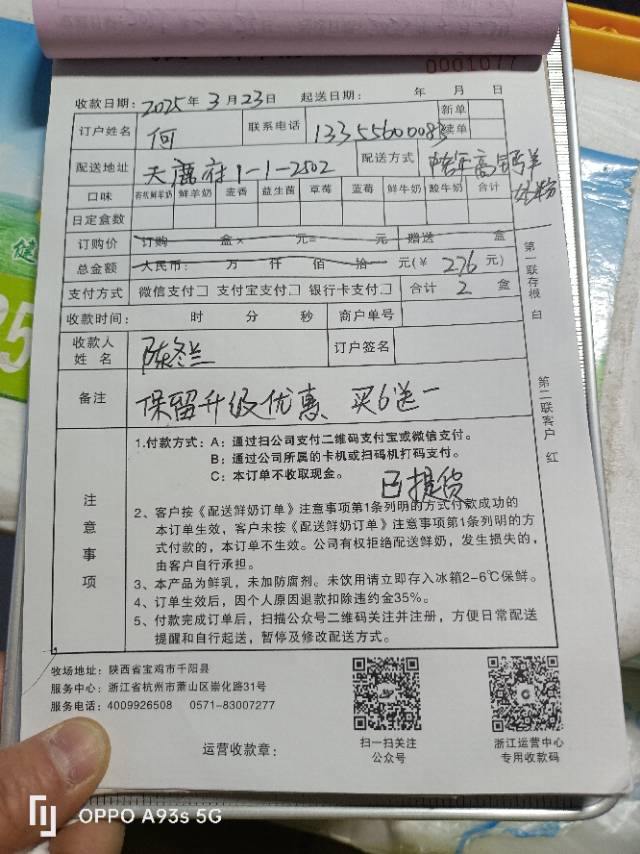 0001077
收款日期：2025年3月23日 起送日期： 年 月 日
订户姓名 何 联系电话 新单 续单
配送地址 天麓府1-1-2502 配送方式
口味 鲜羊奶 麦香 益生菌 草莓 蓝莓 鲜牛奶 酸牛奶 合计
日定盒数
订购价 订购 盒× 元= 元 赠送 盒
总金额 人民币： 万 仟 佰 拾 元(￥ 276 元)
支付方式 微信支付□ 支付宝支付□ 银行卡支付□ 合计 2 盒
收款时间： 时 分 秒 商户单号
收款人姓名 陈冬兰 订户签名
备注 保留升级优惠 买6送一
第一联存根 白
第二联客户 红
注意事项
1.付款方式：A：通过扫公司支付二维码支付宝或微信支付。
B：通过公司所属的卡机或扫码机打码支付。
C：本订单不收取现金。
已提货
2、客户按《配送鲜奶订单》注意事项第1条列明的方式付款成功的
本订单生效，客户未按《配送鲜奶订单》注意事项第1条列明的方
式付款的，本订单不生效。公司有权拒绝配送鲜奶，发生损失的，
由客户自行承担。
3、本产品为鲜乳，未加防腐剂。未饮用请立即存入冰箱2-6℃保鲜。
4、订单生效后，因个人原因退款扣除违约金35%。
5、付款完成订单后，扫描公众号二维码关注并注册，方便日常配送
提醒和自行起送，暂停及修改配送方式。
牧场地址：陕西省宝鸡市千阳县
服务中心：浙江省杭州市萧山区崇化路31号
服务电话：4009926508 0571-83007277
运营收款章：
扫一扫关注
公众号
浙江运营中心
专用收款码
OPPO A93s 5G